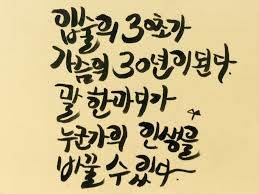 입술의 30초가
가슴의 30년이 된다.
말 한마디가
누군가의 인생을
바꿀 수 있다